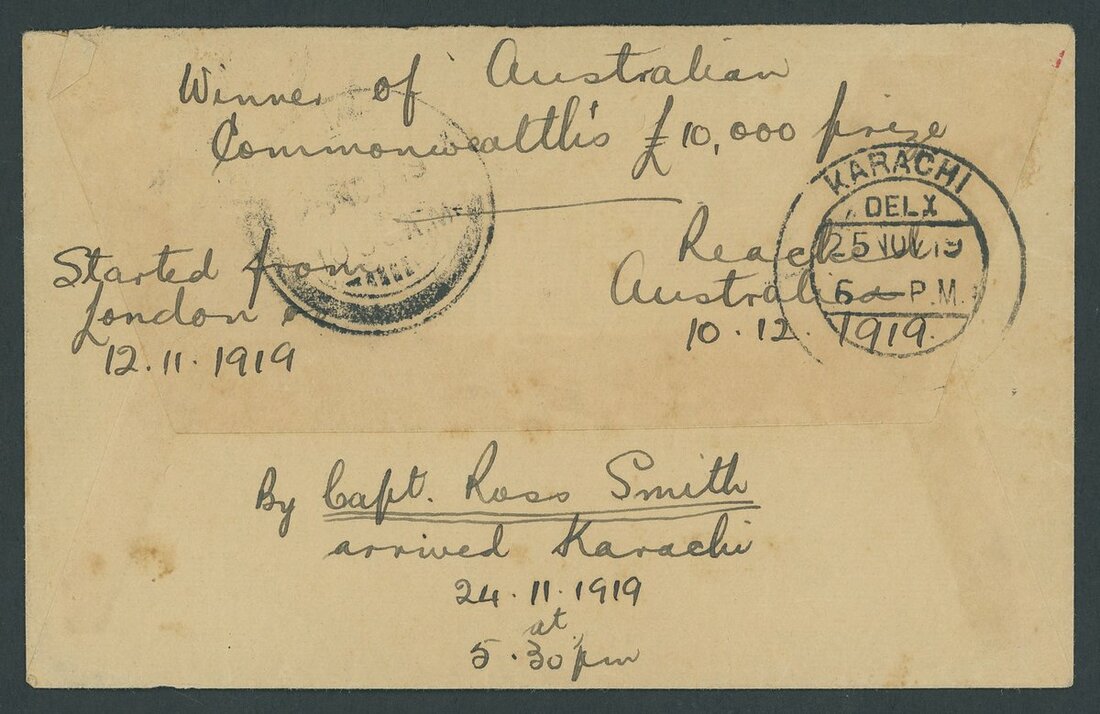 Winner of Australian
Commonwealth's £10,000 prize
Started from
London
12.11.1919
Reached
Australia
10.12.1919.
KARACHI
DELX
25 NOV 19
6 P.M.
By Capt. Ross Smith
arrived Karachi
24.11.1919
at
5.30 pm